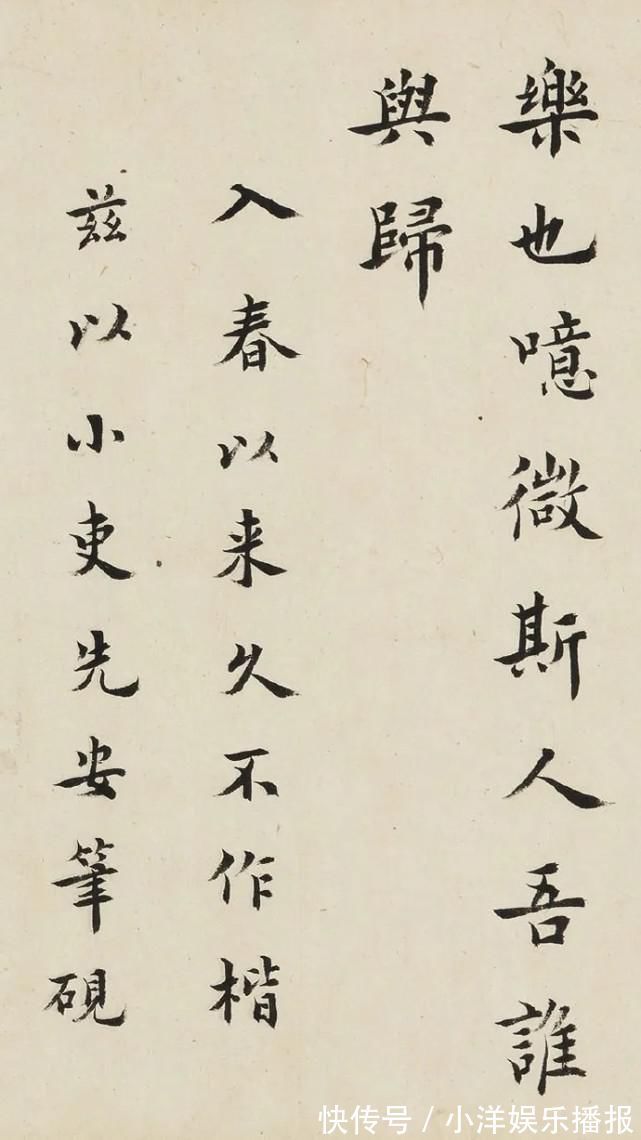 樂也噫微斯人吾誰
與歸
入春以来久不作楷
兹以小吏先安筆硯
快传号/小洋娱乐播报